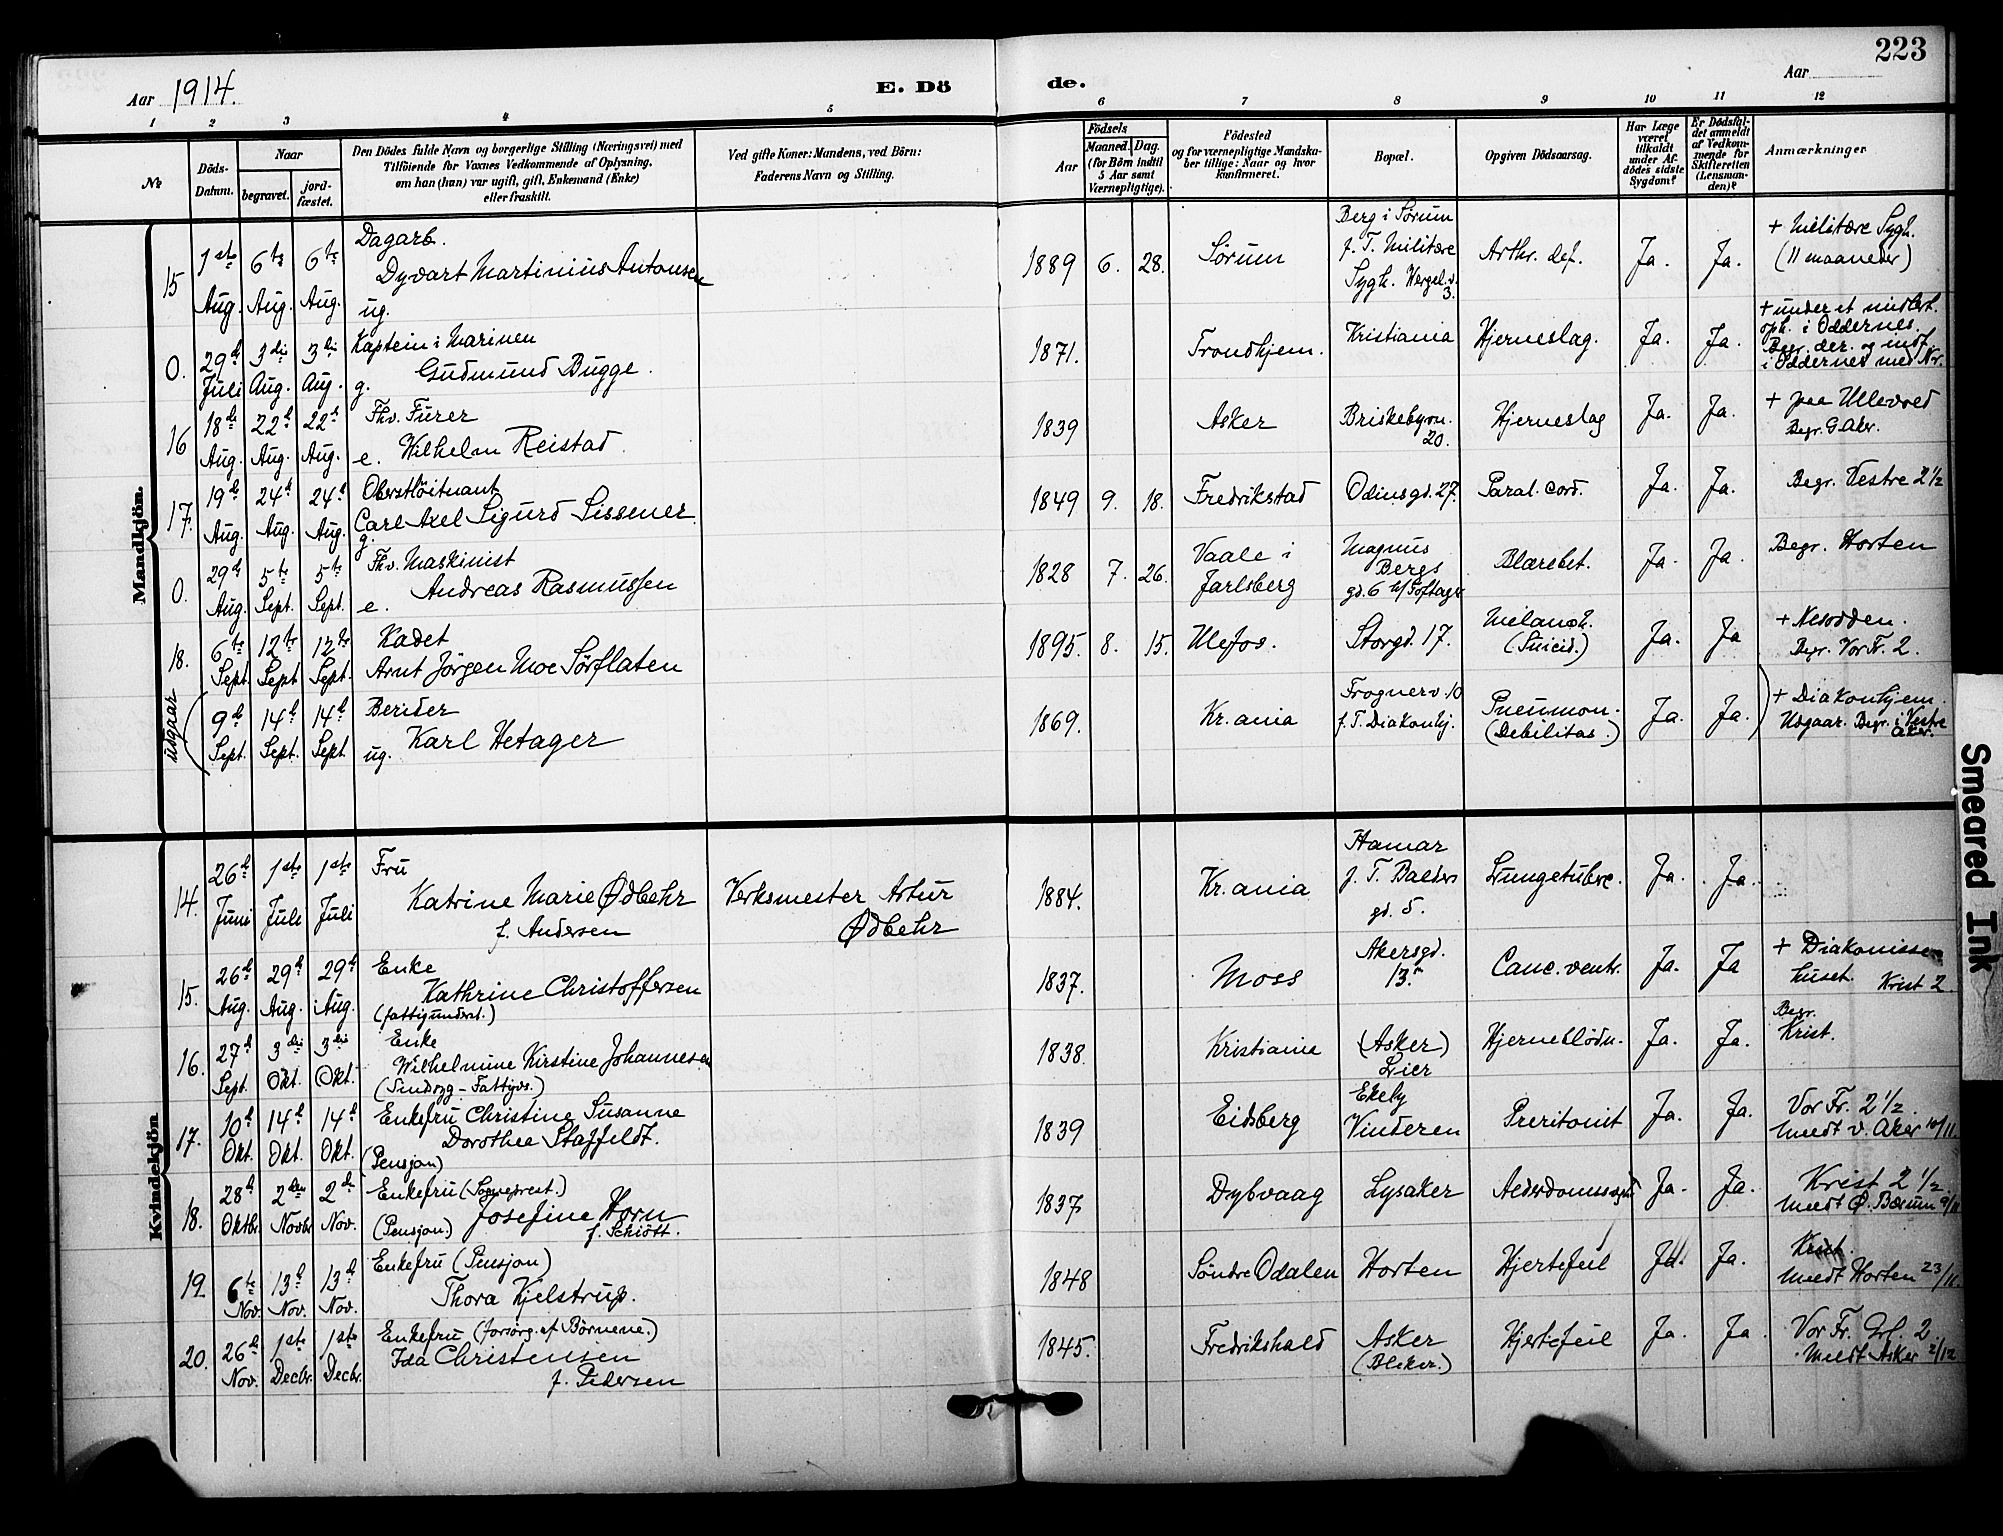 223
Aar 1914.
E. Dö
de.
Aar
1 2 3 4 5 6 7 8 9 10 11 12
№
Döds-
Datum.
Naar
begravet.
jord-
fæstet.
Den Dödes fulde Navn og borgerlige Stilling (Næringsvei) med
Tilföiende for Voxnes Vedkommende af Oplysning,
om han (hun) var ugift, gift, Enkemand (Enke)
eller fraskilt.
Ved gifte Koner: Mandens, ved Börn:
Faderens Navn og Stilling.
Födsels
Aar
Maaned. Dag.
(for Börn indtil
5 Aar samt
Værnepligtige).
Födested
og for værnepligtige Mandska-
ber tillige: Naar og hvor
konfirmeret.
Bopæl.
Opgiven Dödsaarsag.
Har Læge
været
tilkaldt
under Af-
dödes sidste
Sygdom?
Er Dödsfal-
det anmeldt
af Vedkom-
mende for
Skifteretten
(Lensman-
den)?
Anmærkninger
Mandkjön.
15 1ste Aug. 6te Aug. 6te Aug.
Dagarb.
Dyvart Martinius Antonsen
ug.
1889 6. 28. Sørum
Berg i Sørum
f. T. Militære
Sygh. Wergel.v.
3.
Arthr. def. Ja. Ja.
+ Militære Sygh.
(11 maaneder)
0. 29d Juli 3die Aug. 3die Aug.
Kaptein i Marinen
Gudmund Bugge.
g.
1871. Trondhjem. Kristiania Hjerneslag. Ja. Ja.
+ under et midlert.
oph. i Oddernes.
Begr. der. og indf.
i Oddernes med Nr.
16 18de Aug. 22d Aug. 22d Aug.
Fhv. Furer
e. Wilhelm Reistad.
1839 Asker
Briskebyvn.
20.
Hjerneslag Ja. Ja.
+ paa Ullevold
Begr. G. Aker.
17. 19d Aug. 24d Aug. 24d Aug.
Oberstløitnant
Carl Axel Sigurd Sissener
g.
1849 9. 18. Fredrikstad Odinsgd. 27. Paral. cord. Ja. Ja. Begr. Vestre 2 1/2
0. 29d Aug. 5te Sept. 5te Sept.
Fhv. Maskinist
Andreas Rasmussen
e.
1828 7. 26.
Vaale i
Jarlsberg
Magnus
Bergs
gd. 6
Blærebet. Ja. Ja. Begr. Horten
18. 6te Sept. 12te Sept. 12te Sept.
Kadet
Arnt Jörgen Moe Sörflaten
1895. 8. 15. Ulefos. Storgd. 17.
Melanch.
(Suicid.)
Ja. Ja
+ Nesodden.
Begr. Vor Fr. 2.
utgaar
( 9d Sept. 14d Sept. 14d Sept.
Berider
ug. Karl Hetager
1869. Kr.ania
Frognerv. 10
f. T. Diakonhj.
Pneumon.
(Debilitas.)
Ja. Ja. )
+ Diakonhjem.
Udgaar. Begr. i Vestre
Aker.
Kvindekjön
14. 26d Juni 1ste Juli 1ste Juli
Fru
Katrine Marie Ødbehr
f. Andersen
Verksmester Artur
Ødbehr
1884. Kr.ania
Hamar
f. T. Balders
gd. 5.
Lungetuberc. Ja. Ja.
15. 26d Aug. 29d Aug. 29d Aug.
Enke
Kathrine Christoffersen
(fattigunderst.)
1837. Moss
Akersgd.
13.
Canc. ventr. Ja. Ja
+ Diakonisse-
huset. Krist 2.
16. 27d Sept. 3die Okt. 3die Okt.
Enke
Wilhelmine Kirstine Johannesen
(Sindsyg - Fattigvs.)
1838. Kristiania
(Asker)
Lier
Hjerneblødn. Ja. Ja.
Begr.
Krist.
17. 10d Okt. 14d Okt. 14d Okt.
Enkefru Christine Susanne
Dorothea Staffeldt.
(Pensjon)
1839 Eidsberg
Ekely
Vinderen
Preritonit Ja. Ja.
Vor Fr. 2 1/2.
meldt v. Aker 10/11.
18. 28d Oktbr. 2den Novbr. 2den Nov.
Enkefru (Sogneprest.)
(Pensjon.) Josefine Horn
f. Schiött.
1837 Dybvaag Lysaker Alderdomssvagh. Ja. Ja.
Krist 2 1/2.
meldt Ø. Bærum 9/11
19. 6te Nov. 13d Nov. 13d Nov.
Enkefru (Pensjon)
Thora Kjelstrup.
1848 Söndre Odalen Horten Hjertefeil Ja. Ja.
Krist.
meldt Horten 23/11.
20. 26d Nov. 1ste Decbr. 1ste Decbr.
Enkefru (forsørg. af Börnene.)
Ida Christensen
f. Pedersen
1845. Fredrikshald
Asker
(Bleker.)
Hjertefeil Ja. Ja.
Vor Fr. Grl. 2.
Meldt Asker 2/12
Smeared Ink